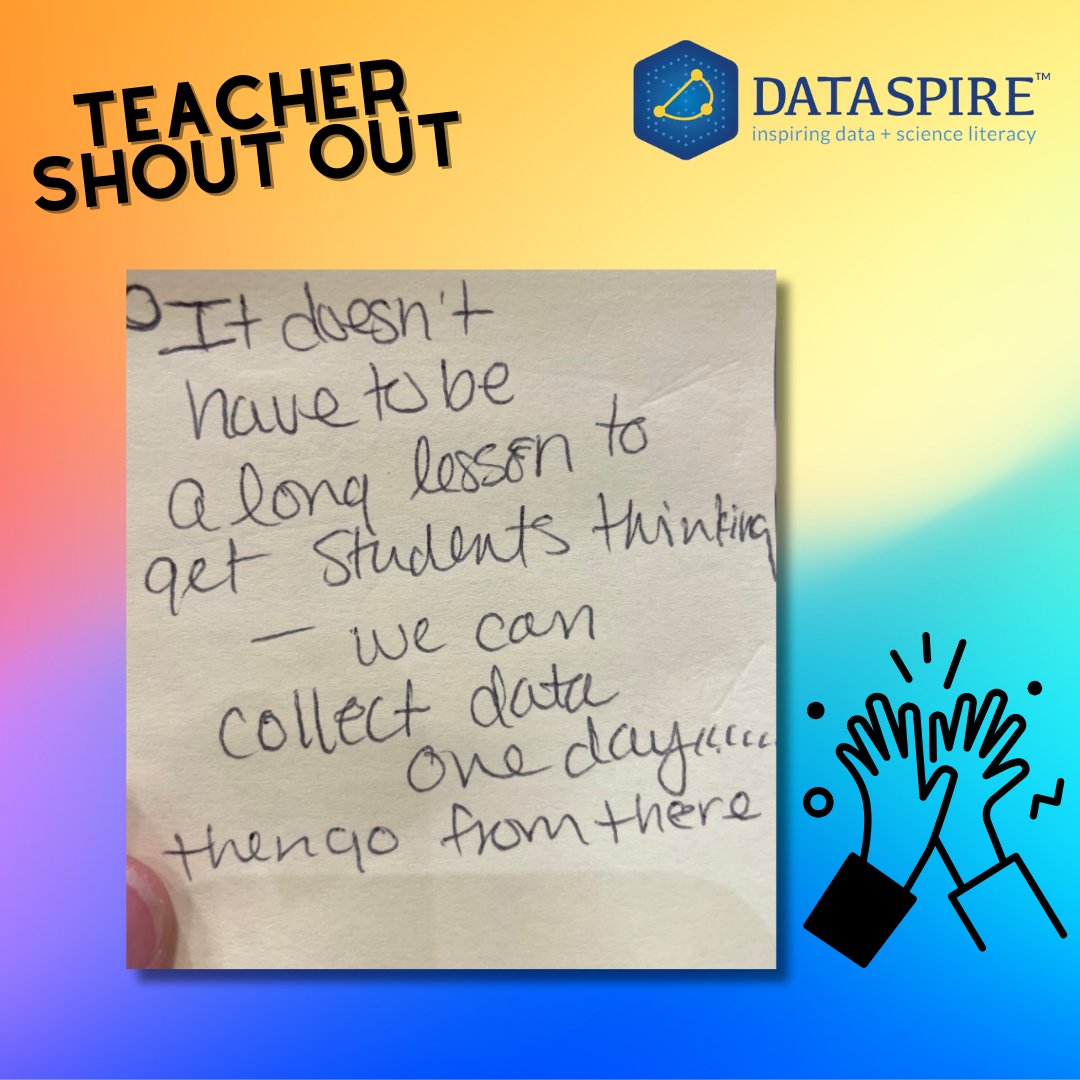 TEACHER
SHOUT OUT
DATASPIRE™
inspiring data + science literacy
It doesn't
have to be
a long lesson to
get students thinking
— we can
collect data
one day,,,,,,
then go from there